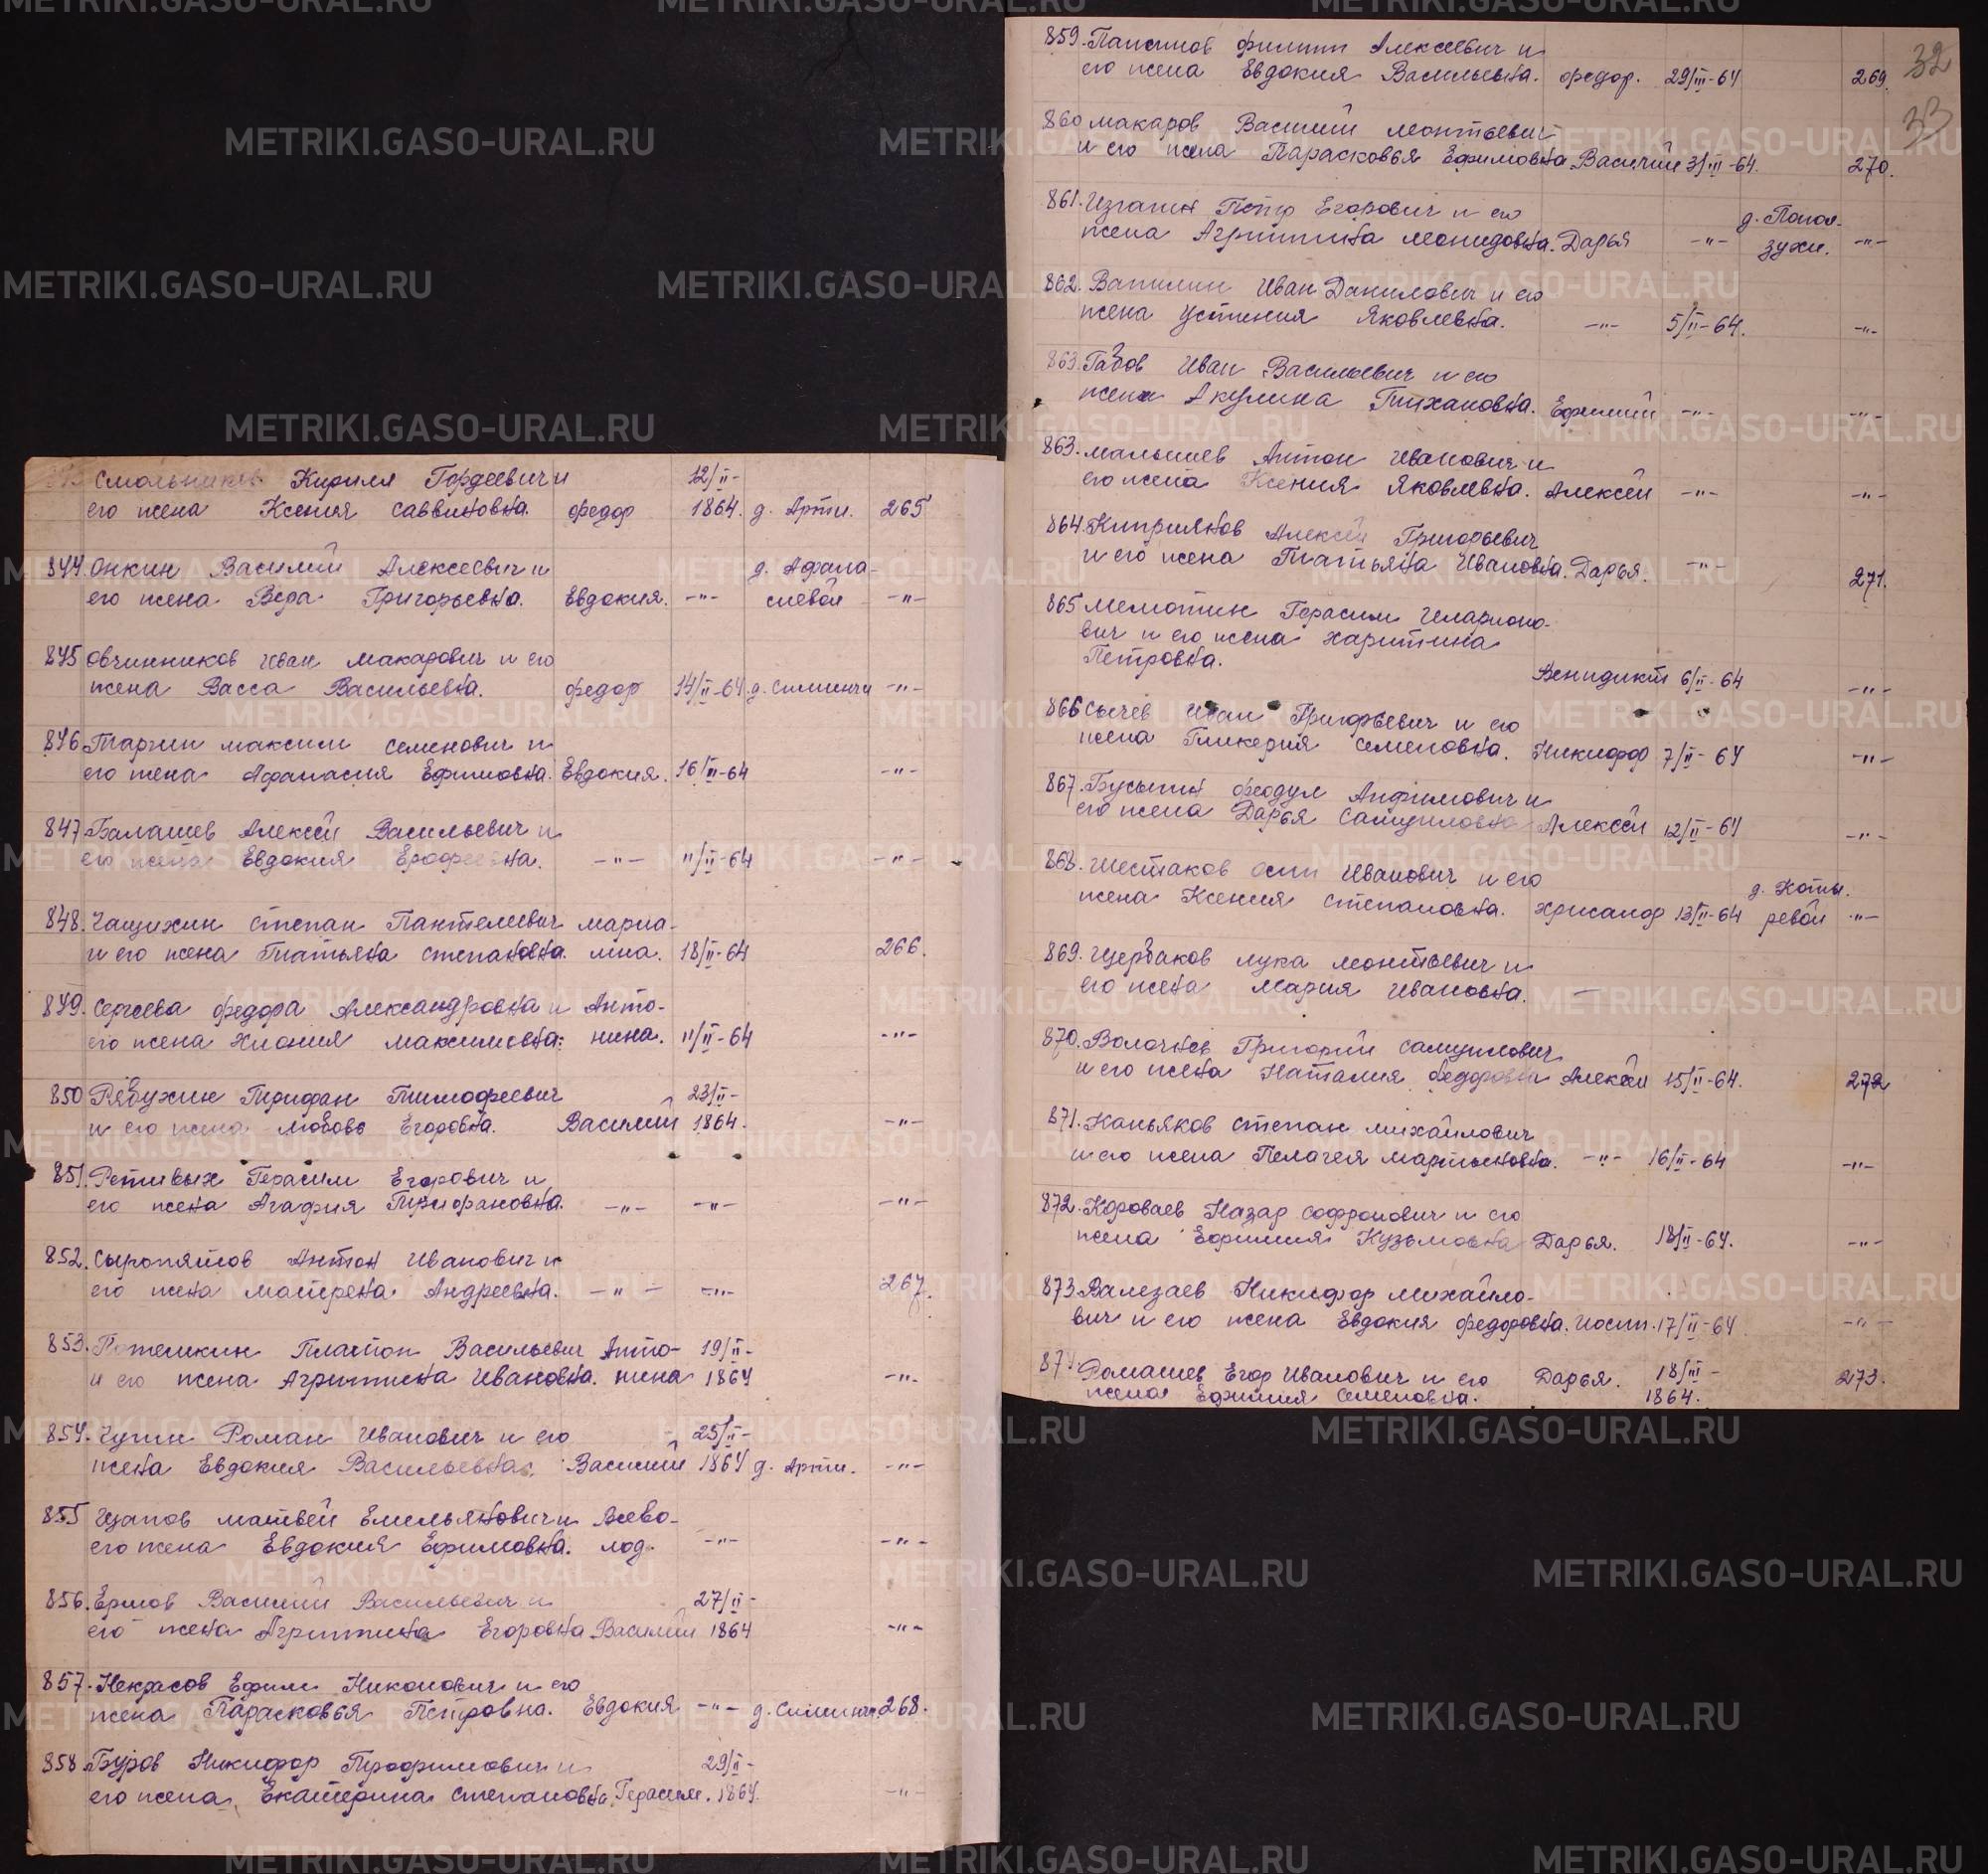 Смольников Кирилл Гордеевич и 12/II-
его жена Ксения Саввиновна. Федор 1864. д. Арти. 265
844. Онкин Василий Алексеевич и д. Афана-
его жена Вера Григорьевна. Евдокия. -"- сиевой -"-
845 Овчинников Иван Макарович и его
жена Васса Васильевна. Федор 14/II-64 д. Симинчи -"-
846. Таргин Максим Семенович и
его жена Афанасия Ефимовна. Евдокия. 16/II-64 -"-
847. Балашев Алексей Васильевич и
его жена Евдокия Ерофеевна. -"- 11/II-64 -"-
848. Чащихин Степан Пантелеевич Мариа-
и его жена Татьяна Степановна. мна. 18/II-64 266.
849. Сергеева Федора Александровна и Анто-
его жена Хиония Максимовна. нина. 11/II-64 -"-
850 Рябухин Трифан Тимофеевич 23/II-
и его жена Любовь Егоровна. Василий 1864. -"-
851. Ретивых Герасим Егорович и
его жена Агафия Трифановна. -"- -"- -"-
852. Сыропятов Антон Иванович и
его жена Матрена Андреевна. -"- -"- 267.
853. Потемкин Платон Васильевич Анто- 19/II-
и его жена Агриппина Ивановна. нина 1864 -"-
854. Чупин Роман Иванович и его 25/II-
жена Евдокия Васильевна. Василий 1864 д. Арти. -"-
855 Щапов Матвей Емельянович и Всево-
его жена Евдокия Ефимовна. лод. -"- -"-
856. Ермов Василий Васильевич и 27/II-
его жена Агриппина Егоровна Василий 1864 -"-
857. Некрасов Ефим Никонович и его
жена Парасковья Петровна. Евдокия -"- д. Симинчи 268.
858. Буров Никифор Трофимович и 29/II-
его жена Екатерина Степановна. Герасим. 1864. -"-
32
33
859. Паисинов Филипп Алексеевич и
его жена Евдокия Васильевна. Федор. 29/III-64 269.
860 Макаров Василий Леонтьевич
и его жена Парасковья Ефимовна. Василий 3/III-64. 270.
861. Изгагин Петр Егорович и его д. Попол-
жена Агриппина Леонидовна. Дарья -"- зухи. -"-
862. Ватилин Иван Данилович и его
жена Устиния Яковлевна. -"- 5/II-64. -"-
863. Габов Иван Васильевич и его
жена Акулина Тихановна. Ефимий -"- -"-
863. Малышев Антон Иванович и
его жена Ксения Яковлевна. Алексей -"- -"-
864. Киприянов Алексей Григорьевич
и его жена Татьяна Ивановна. Дарья. -"- 271.
865 Мелотин Герасим Иларионо-
вич и его жена Харитина
Петровна. Венидикт 6/II-64 -"-
866 Сычев Иван Григорьевич и его
жена Гликерия Семеновна. Никифор 7/II-64 -"-
867. Бусыгин Феодул Анфимович и
его жена Дарья Самуиловна Алексей 12/II-64 -"-
868. Шестаков Осип Иванович и его д. Коты.
жена Ксения Степановна. Хрисанф 13/II-64 ревой -"-
869. Щербаков Лука Леонтьевич и
его жена Мария Ивановна. —
870. Волочнев Григорий Самуилович
и его жена Наталия Федоровна Алексей 15/II-64. 272
871. Коньяков Степан Михайлович
и его жена Пелагея Мартыновна. -"- 16/II-64 -"-
872. Короваев Назар Софронович и его
жена Ефимия Кузьмовна Дарья. 18/II-64. -"-
873. Валезаев Никифор Михайло-
вич и его жена Евдокия Федоровна. Иосип. 17/II-64 -"-
874. Ромашев Егор Иванович и его Дарья. 18/III- 273.
жена Ефимия Семеновна. 1864.
METRIKI.GASO-URAL.RU